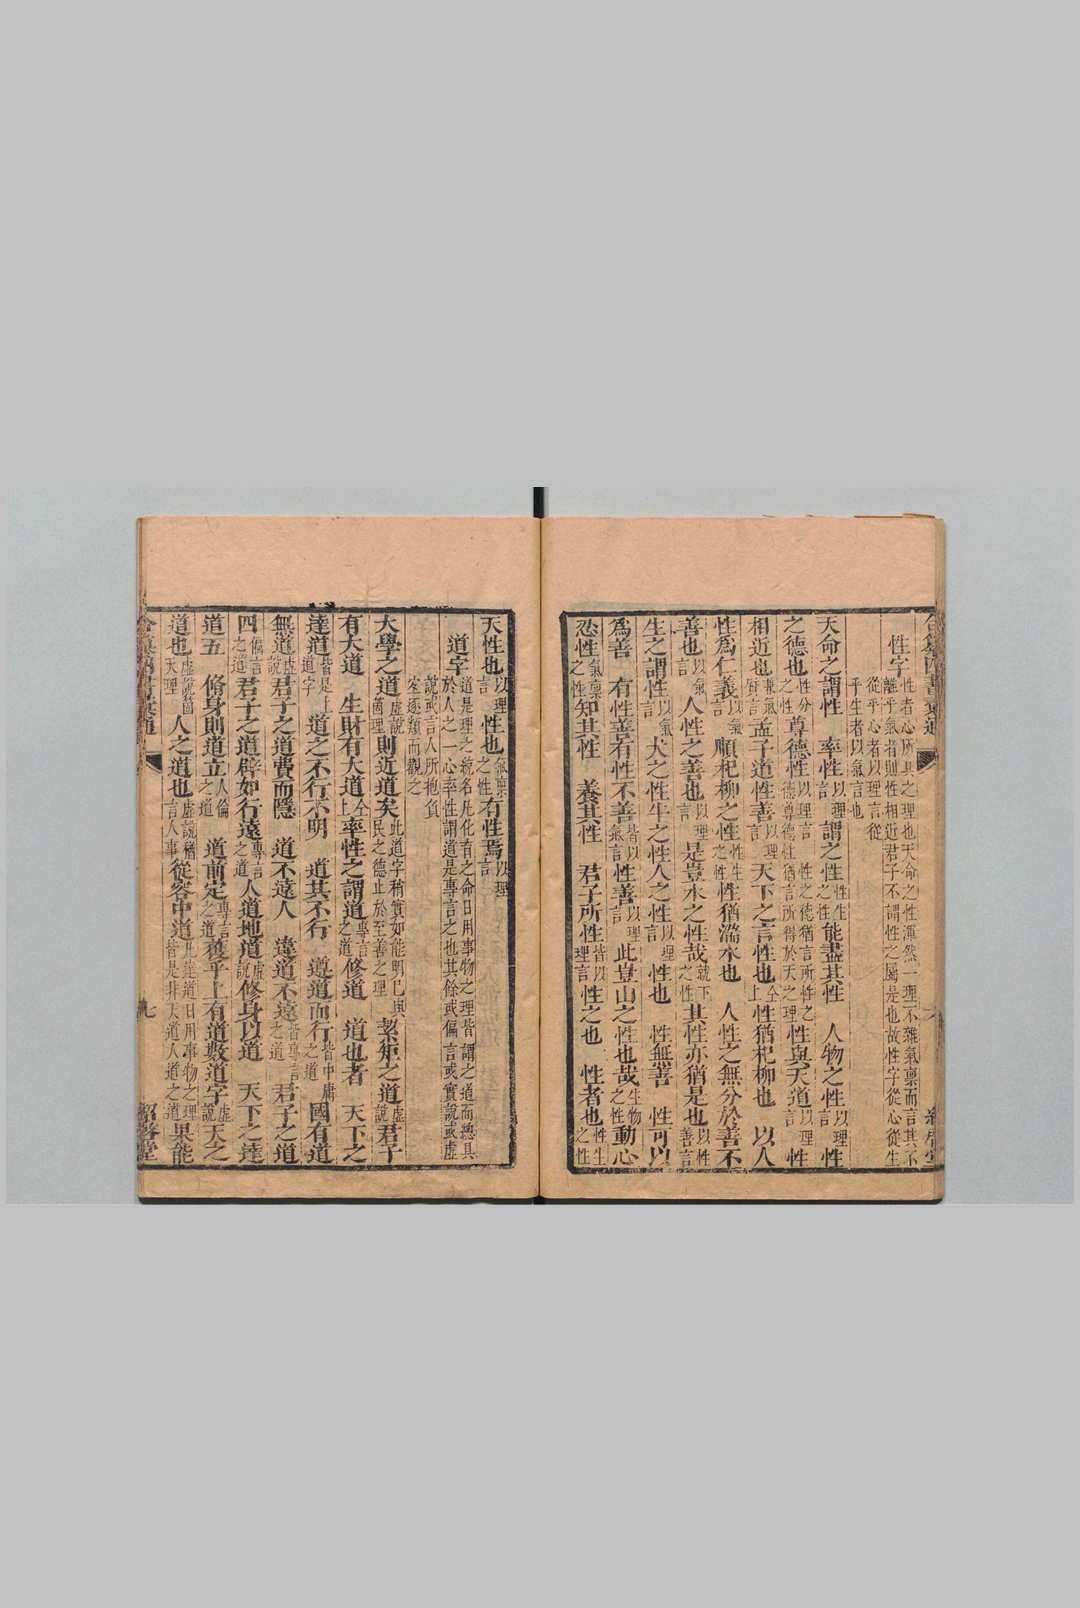 性字 性者心所具之理也天命之性渾然一理不雜氣稟而言其不
離乎氣者則性相近君子不謂性之屬是也故性字從心從生
從乎心者以理言從
乎生者以氣言也
天命之謂性 率性以理言 謂之性性生之性 能盡其性 人物之性以理言 性
之德也性分之性 尊德性以理言德尊德性猶言所得於天之理 性之德猶言所性之 性與天道以理言 性
相近也兼氣質言 孟子道性善以理言 天下之言性也仝上 性猶杞柳也 以人
性為仁義以氣言 順杞柳之性性生之性 性猶湍水也 人性之無分於善不
善也以氣言 人性之善也以理言 是豈水之性哉就下之性 其性亦猶是也以性善言
生之謂性以氣言 犬之性牛之性人之性以理言 性也 性無善 性可以
為善 有性善有性不善皆以氣言 性善以理言 此豈山之性也哉生物之性 動心
忍性氣稟之性 知其性 養其性 君子所性皆以理言 性之也 性者也性生之性
天性也以理言 性也氣稟之性 有性焉以理言
道字 道是理之統名凡化育之命日用事物之理皆謂之道而總具
於人之一心率性謂道是專言之也其餘或偏言或實說或虛
說或言人所抱負
宜逐類而觀之
大學之道虛說箇理 則近道矣此道字稍實如能明己與民之德止於至善之理 絜矩之道虛說 君子
有大道 生財有大道仝上 率性之謂道專言之道 修道 道也者 天下之
達道皆是上道字 道之不行不明 道其不行 遵道而行皆中庸之道 國有道
無道虛說 君子之道費而隱 道不遠人 違道不遠皆專言之道 君子之道
四偏言之道 君子之道辟如行遠專言之道 人道地道虛說 修身以道 天下之達
道五 脩身則道立人倫之道 道前定專言之道 獲乎上有道數道字虛說 天之
道也虛說箇天理 人之道也虛說猶言人事 從容中道此達道日用事物之理皆是非天道人道之道 果能
七
紹啓堂